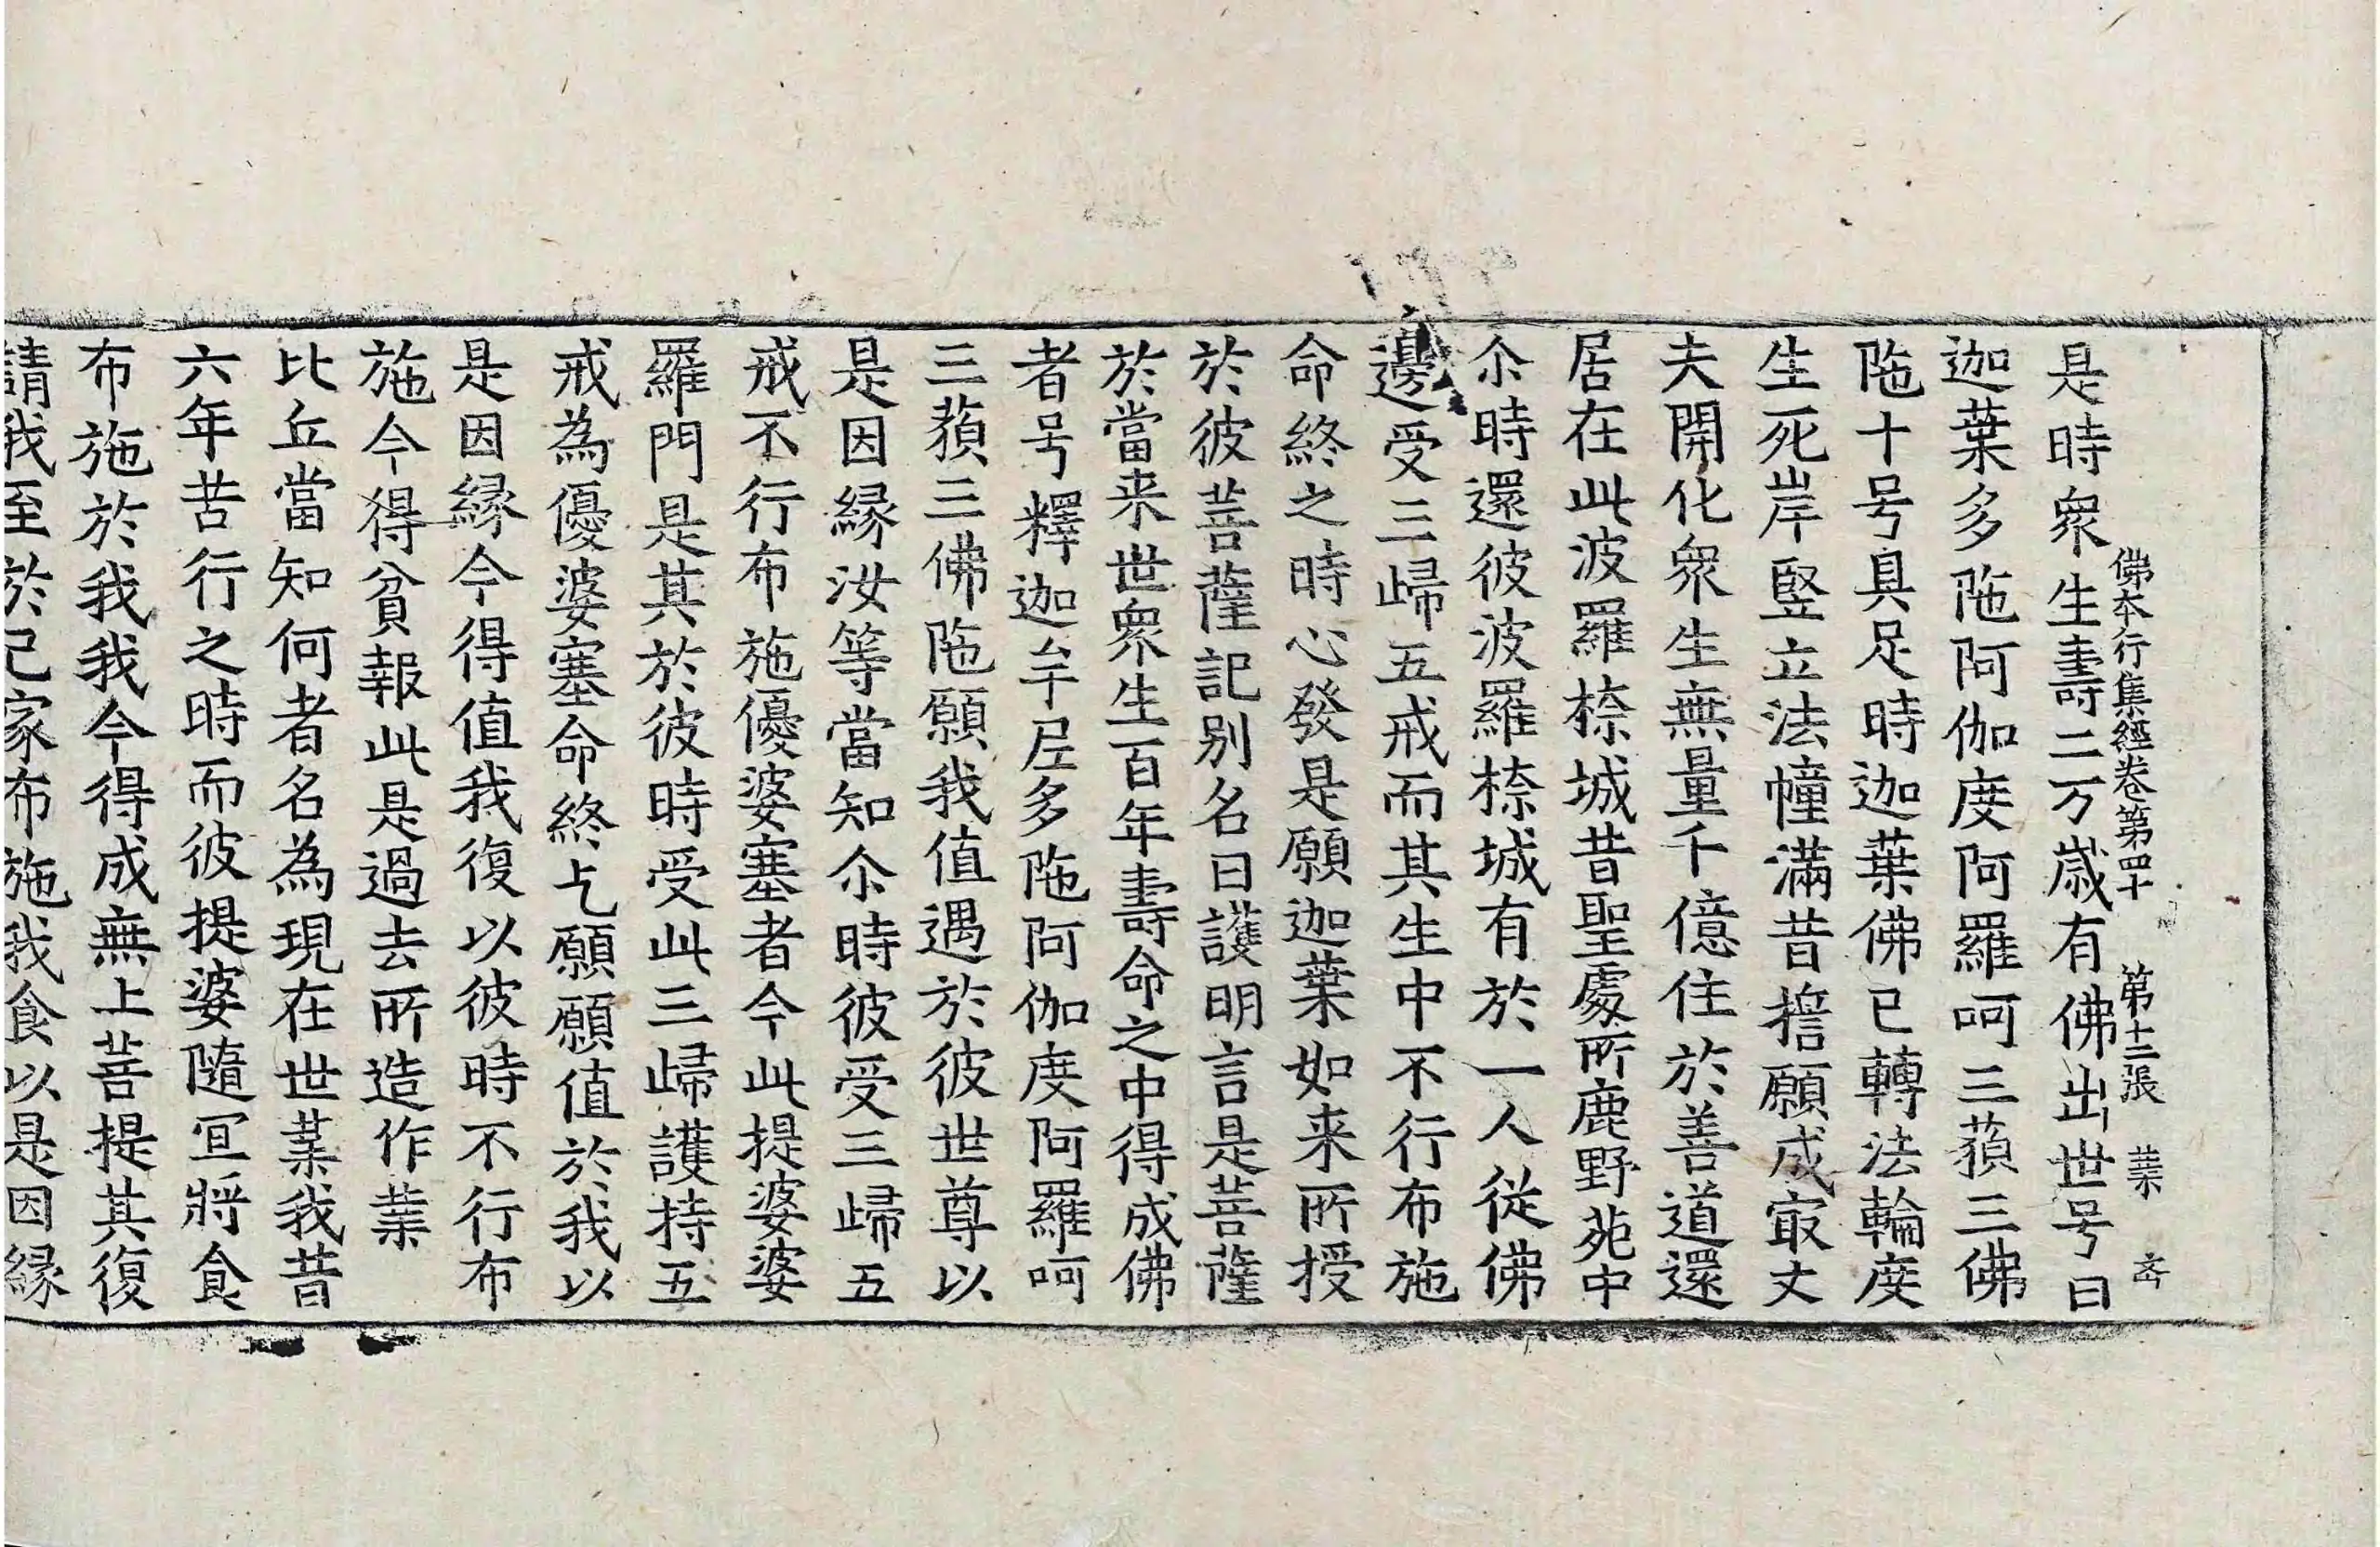 佛本行集經卷第四十 第十二張 業
是時衆生壽二万歳有佛出世号曰
迦葉多陁阿伽度阿羅呵三藐三佛
陁十号具足時迦葉佛已轉法輪度
生死岸竪立法幢滿昔擔願成㝡丈
夫開化衆生無量千億住於善道還
居在此波羅㮈城昔聖處所鹿野苑中
尒時還彼波羅㮈城有於一人從佛
邊受三歸五戒而其生中不行布施
命終之時心發是願迦葉如来所授
於彼菩薩記别名曰護明言是菩薩
於當来世衆生百年壽命之中得成佛
者号釋迦牟尼多陁阿伽度阿羅呵
三藐三佛陁願我值遇於彼世尊以
是因縁汝等當知尒時彼受三歸五
戒不行布施優婆塞者今此提婆婆
羅門是其於彼時受此三歸護持五
戒為優婆塞命終乞願願值於我以
是因縁今得值我復以彼時不行布
施今得貧報此是過去所造作業
比丘當知何者名為現在世業我昔
六年苦行之時而彼提婆隨冝將食
布施於我我今得成無上菩提其復
請我至於己家布施我食以是因縁